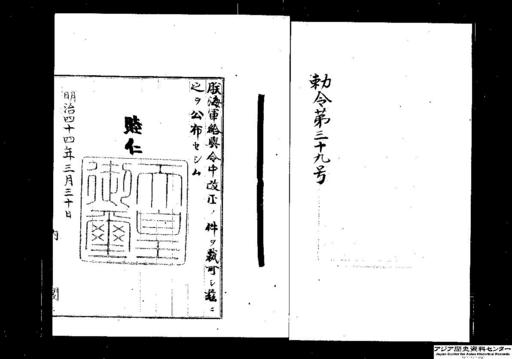 勅令第三十九号
朕海軍給與令中改正ノ件ヲ裁可シ茲ニ
之ヲ公布セシム
睦仁
天皇御璽
明治四十四年三月三十日
内閣
アジア歴史資料センター
Japan Center for Asian Historical Records